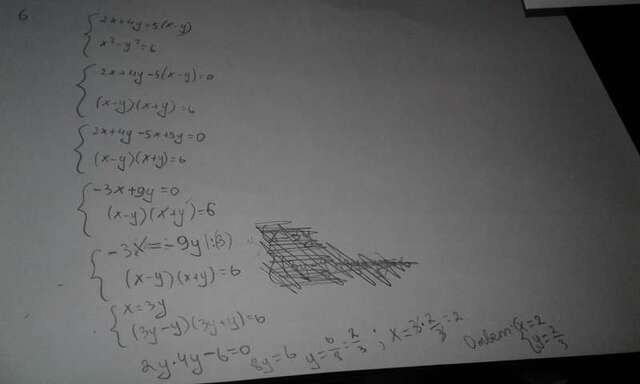 6
2x+4y=5(x-y)
x²-y²=6
2x+4y-5(x-y)=0
(x-y)(x+y)=6
2x+4y-5x+5y=0
(x-y)(x+y)=6
-3x+9y=0
(x-y)(x+y)=6
-3x=-9y|:(3)
(x-y)(x+y)=6
x=3y
(3y-y)(3y+y)=6
2y·4y-6=0 8y=6 y=6/8=2/3; x=3·2/3=2 x=2
y=2/3